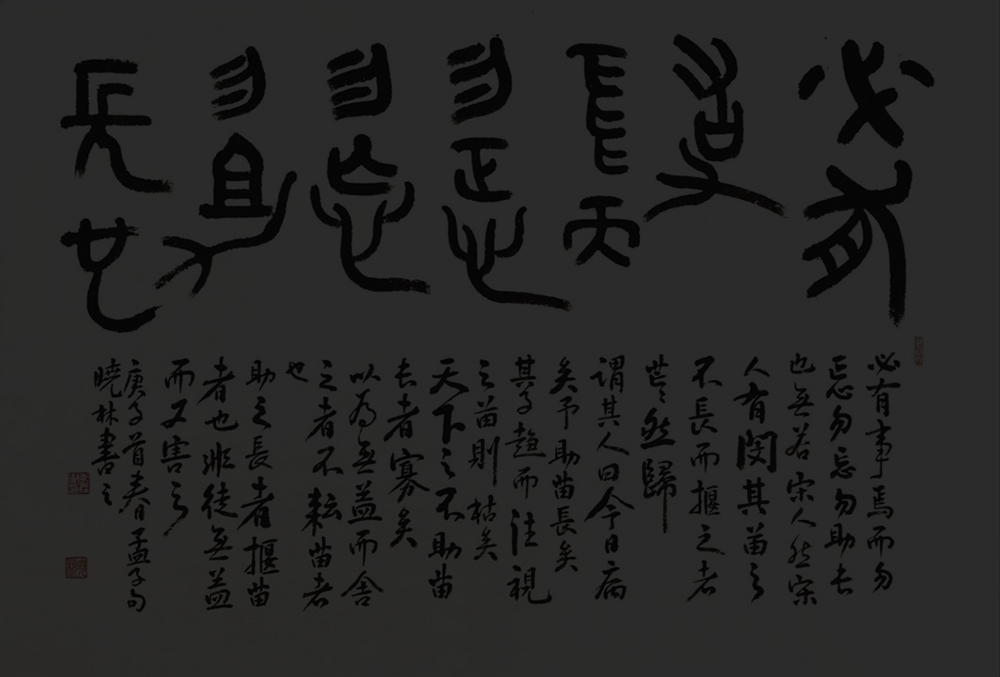 必有
事
焉而
勿正心
勿忘
勿助
長也
必有事焉而勿
正心勿忘勿助長
也無若宋人然宋
人有閔其苗之
不長而揠之者
芒〻然歸
謂其人曰今日病
矣予助苗長矣
其子趨而往視
之苗則枯矣
天下之不助苗
長者寡矣
以為無益而舍
之者不耘苗者
也
助之長者揠苗
者也非徒無益
而又害之
庚子首春日孟子句
曉林書之